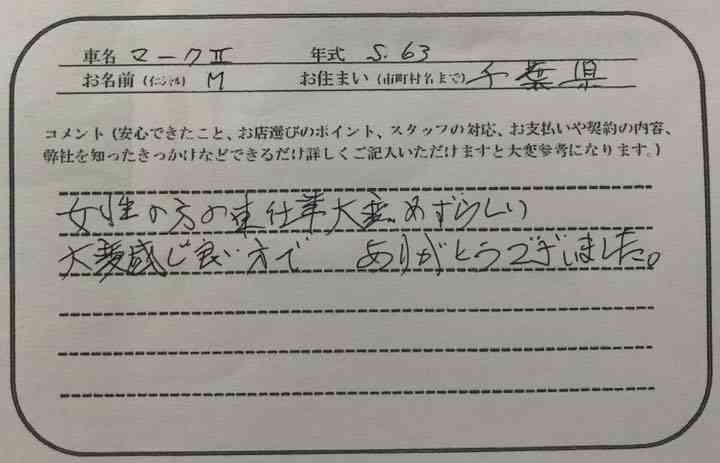 車名 マークⅡ 年式 S.63
お名前(イニシャル) M お住まい(市町村名まで) 千葉県
コメント(安心できたこと、お店選びのポイント、スタッフの対応、お支払いや契約の内容、
弊社を知ったきっかけなどできるだけ詳しくご記入いただけますと大変参考になります。)
女性の方の車仕事大変めずらしい
大変感じ良い方で ありがとうございました。